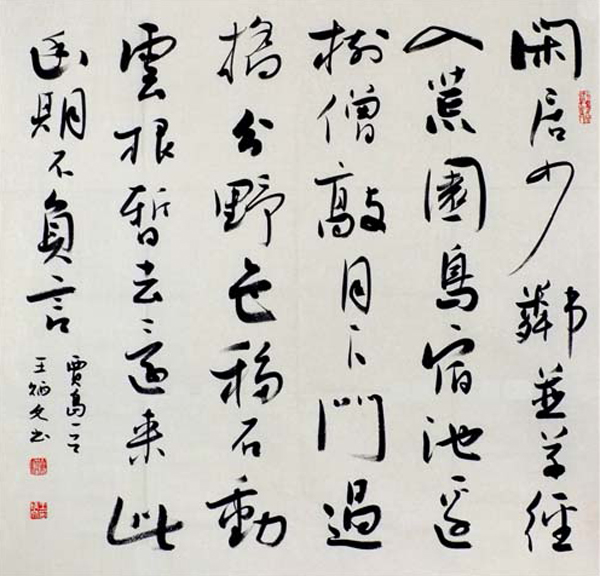 閑居少鄰並草徑
入荒園鳥宿池邊
樹僧敲月下門過
橋分野色移石動
雲根暫去還来此
幽期不負言
賈島
王炳文书